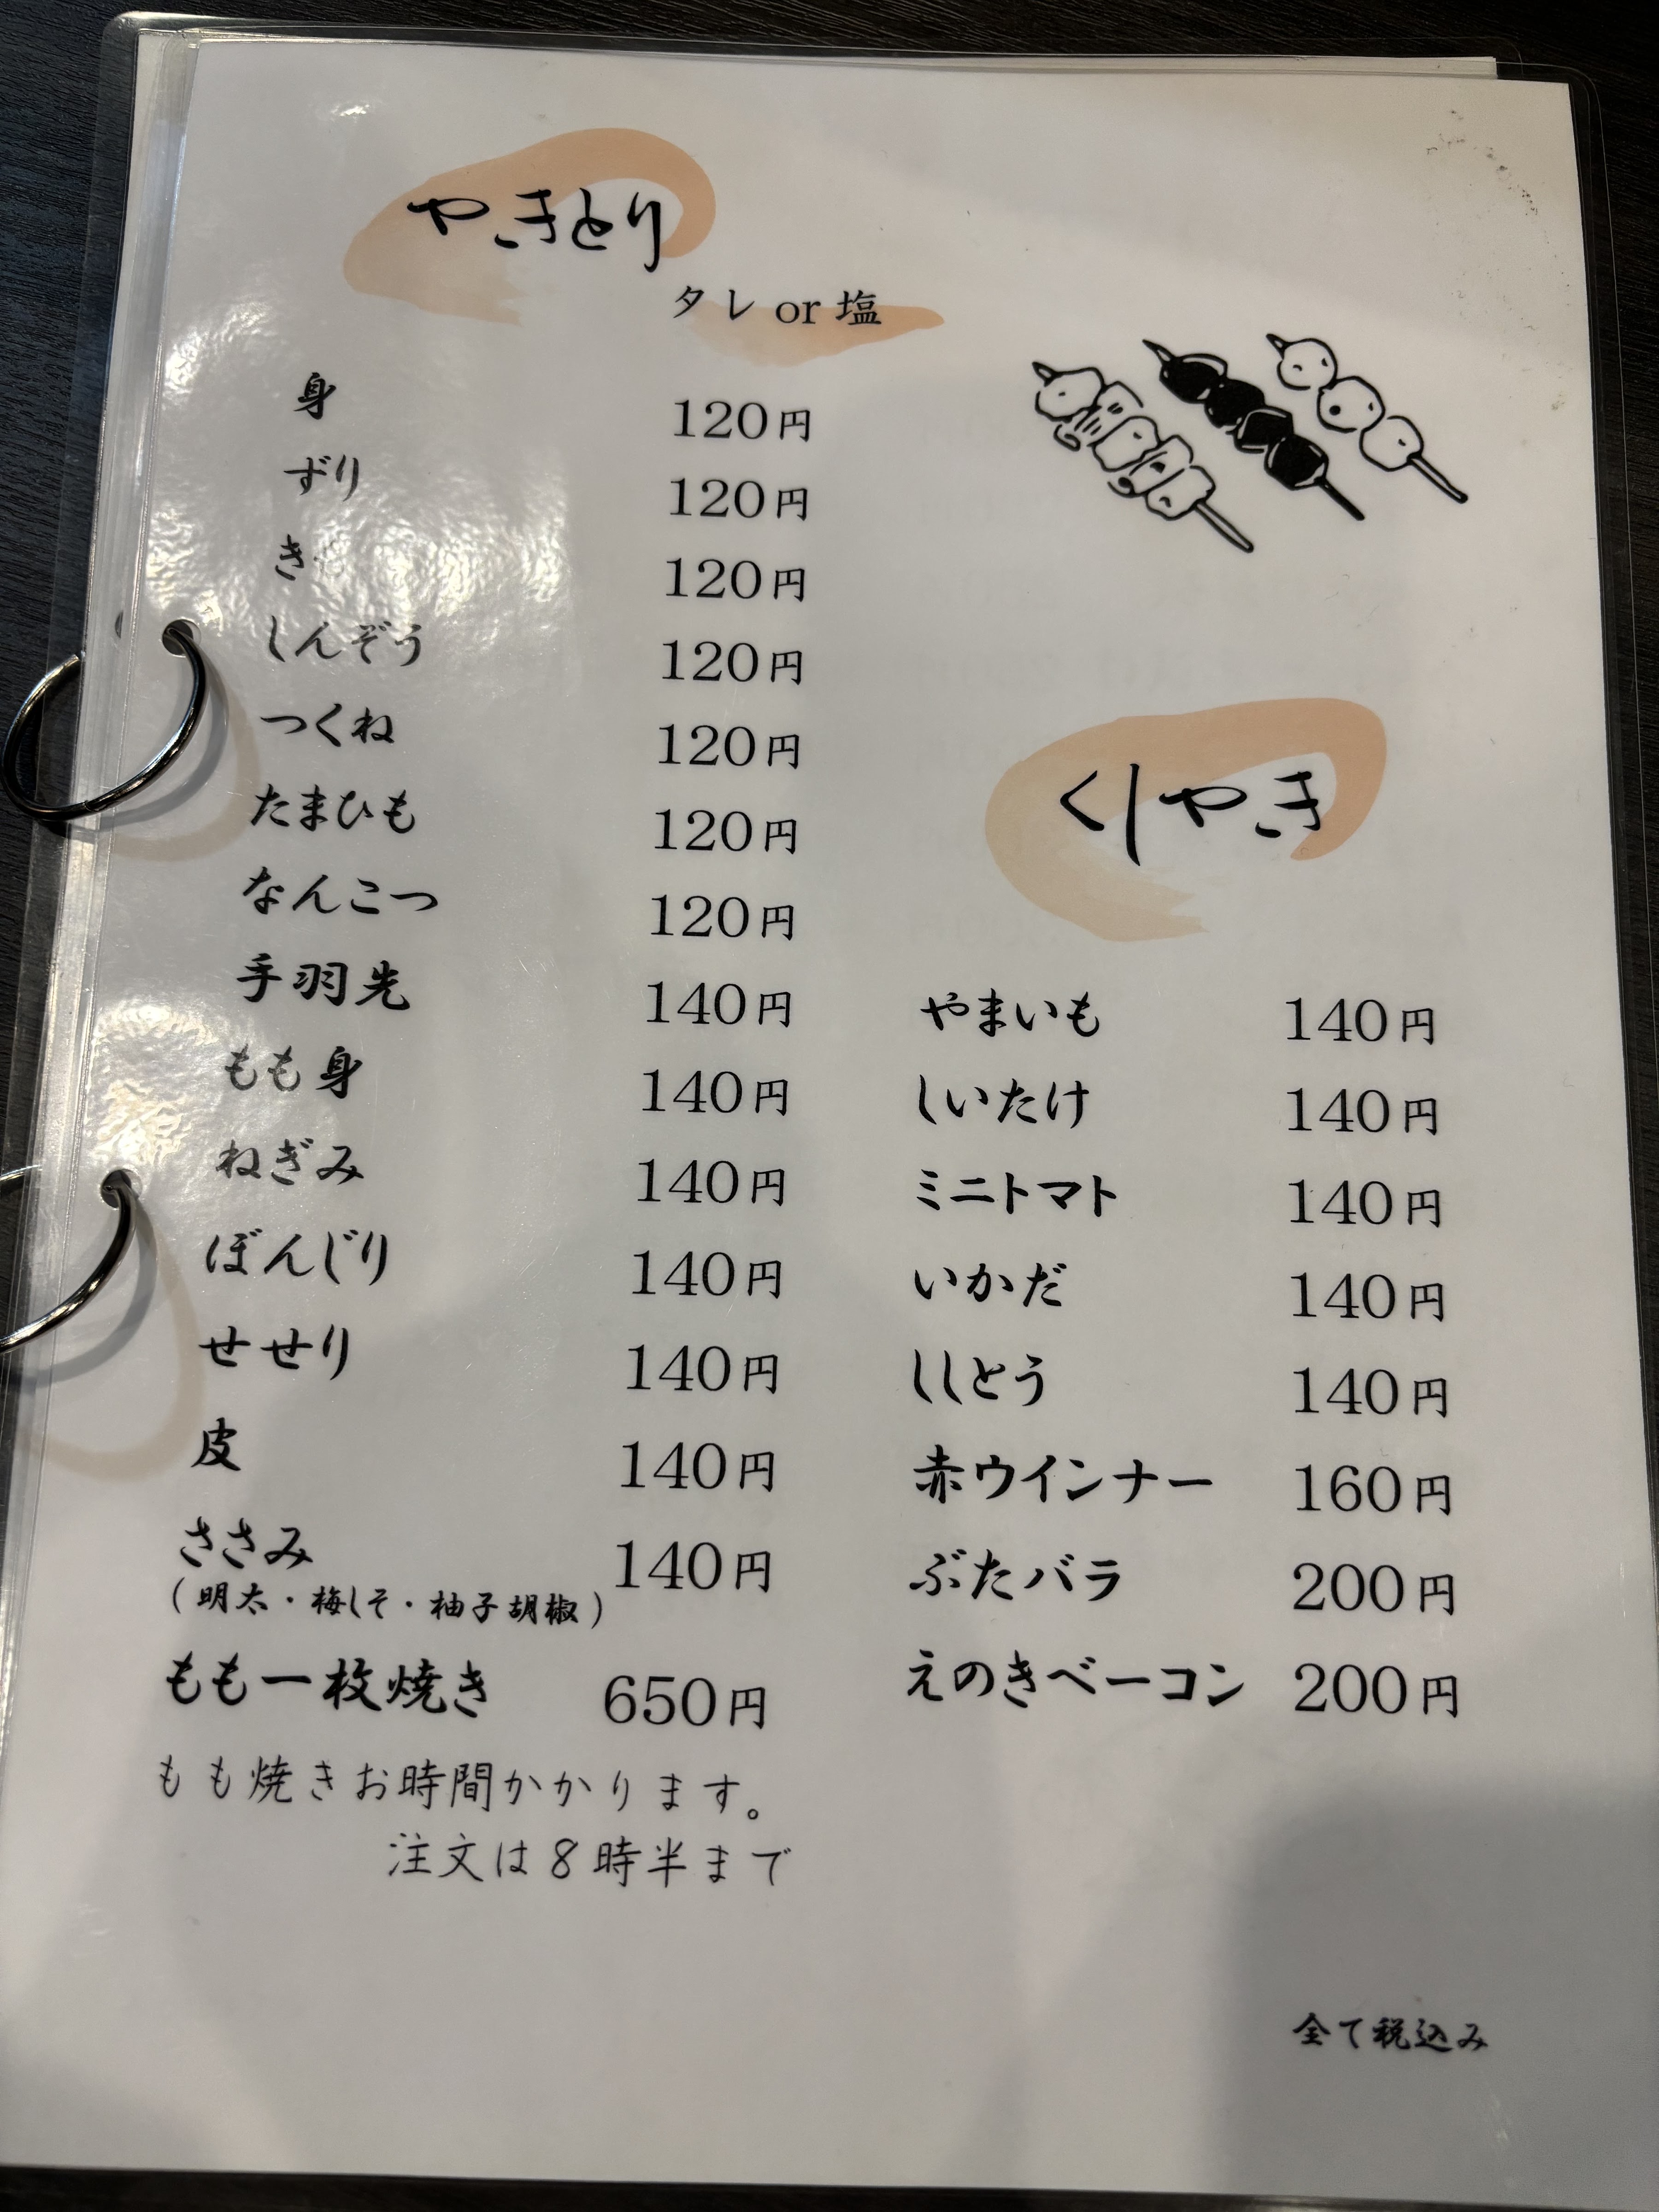 やきとり
タレ or 塩
身 120円
ずり 120円
き 120円
しんぞう 120円
つくね 120円
たまひも 120円
なんこつ 120円
手羽先 140円
もも身 140円
ねぎみ 140円
ぼんじり 140円
せせり 140円
皮 140円
ささみ 140円
(明太・梅しそ・柚子胡椒)
もも一枚焼き 650円
もも焼きお時間かかります。
注文は8時半まで
くしやき
やまいも 140円
しいたけ 140円
ミニトマト 140円
いかだ 140円
ししとう 140円
赤ウインナー 160円
ぶたバラ 200円
えのきベーコン 200円
全て税込み